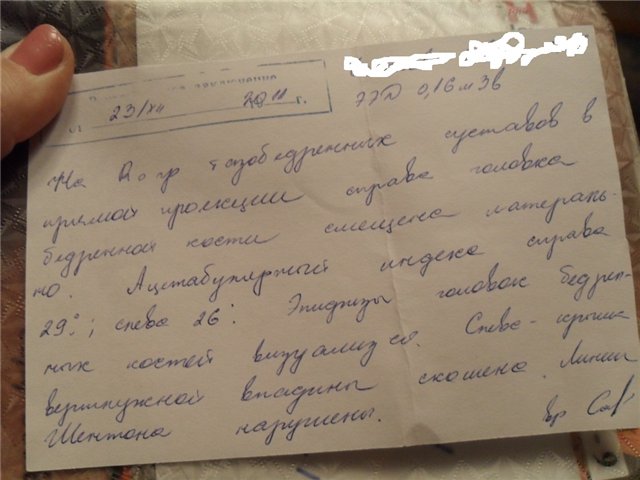 заключение
от 23/XII 2011 г.
ЭЭД 0,16 мЗв
На Rогр тазобедренных суставов в
прямой проекции справа головка
бедренной кости смещена латераль-
но. Ацетабулярный индекс справа
29°; слева 26°. Эпифизы головок бедрен-
ных костей визуализ. Слева - крыша
вертлужной впадины скошена. Линии
Шентона нарушены.
вр